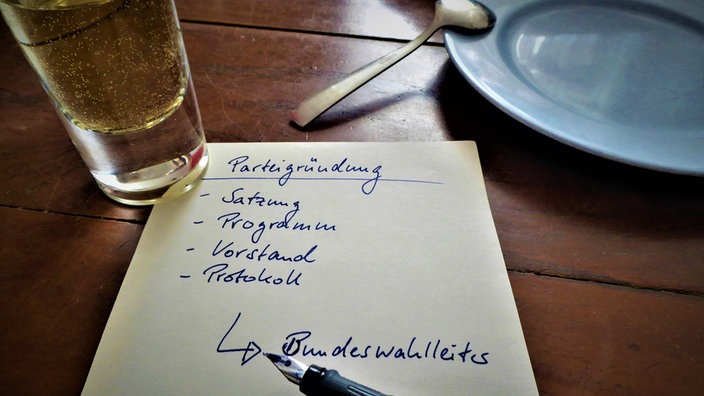 Parteigründung
- Satzung
- Programm
- Vorstand
- Protokoll
Bundeswahlleiter